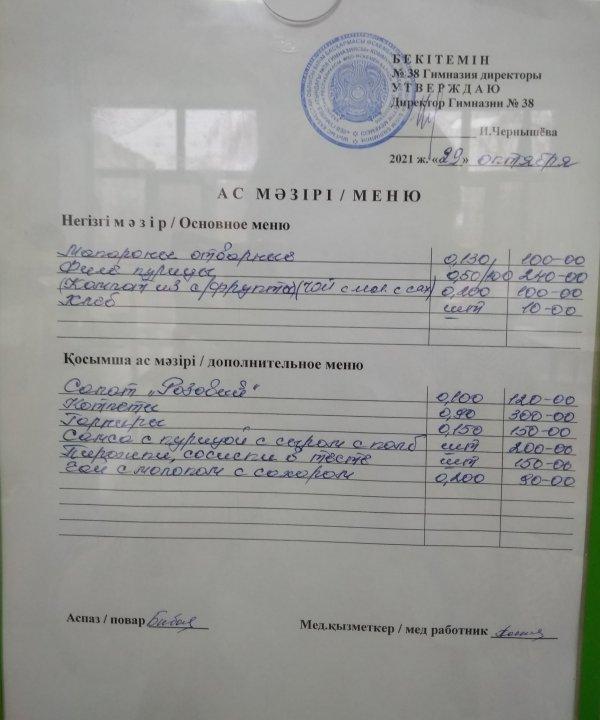 БЕКІТЕМІН
№ 38 Гимназия директоры
УТВЕРЖДАЮ
Директор Гимназии № 38
И.Чернышёва
2021 ж. «29» октября
АС МӘЗІРІ / МЕНЮ
Негізгі мәзір / Основное меню
Макароны отварные 0,130, 100-00
Филе курицы 0,50/100 240-00
Компот из с/фрукты) (чай с мол. с сах) 0,200 100-00
Хлеб шт 10-00
Қосымша ас мәзірі / дополнительное меню
Салат „Розовый“ 0,100 120-00
Котлеты 0,90 300-00
Гарниры 0,150 150-00
Самса с курицой с сыром с колб шт 200-00
Пирожки, сосиски в тесте шт 150-00
Чай с молоком с сахаром 0,200 80-00
Аспаз / повар
Мед.қызметкер / мед работник